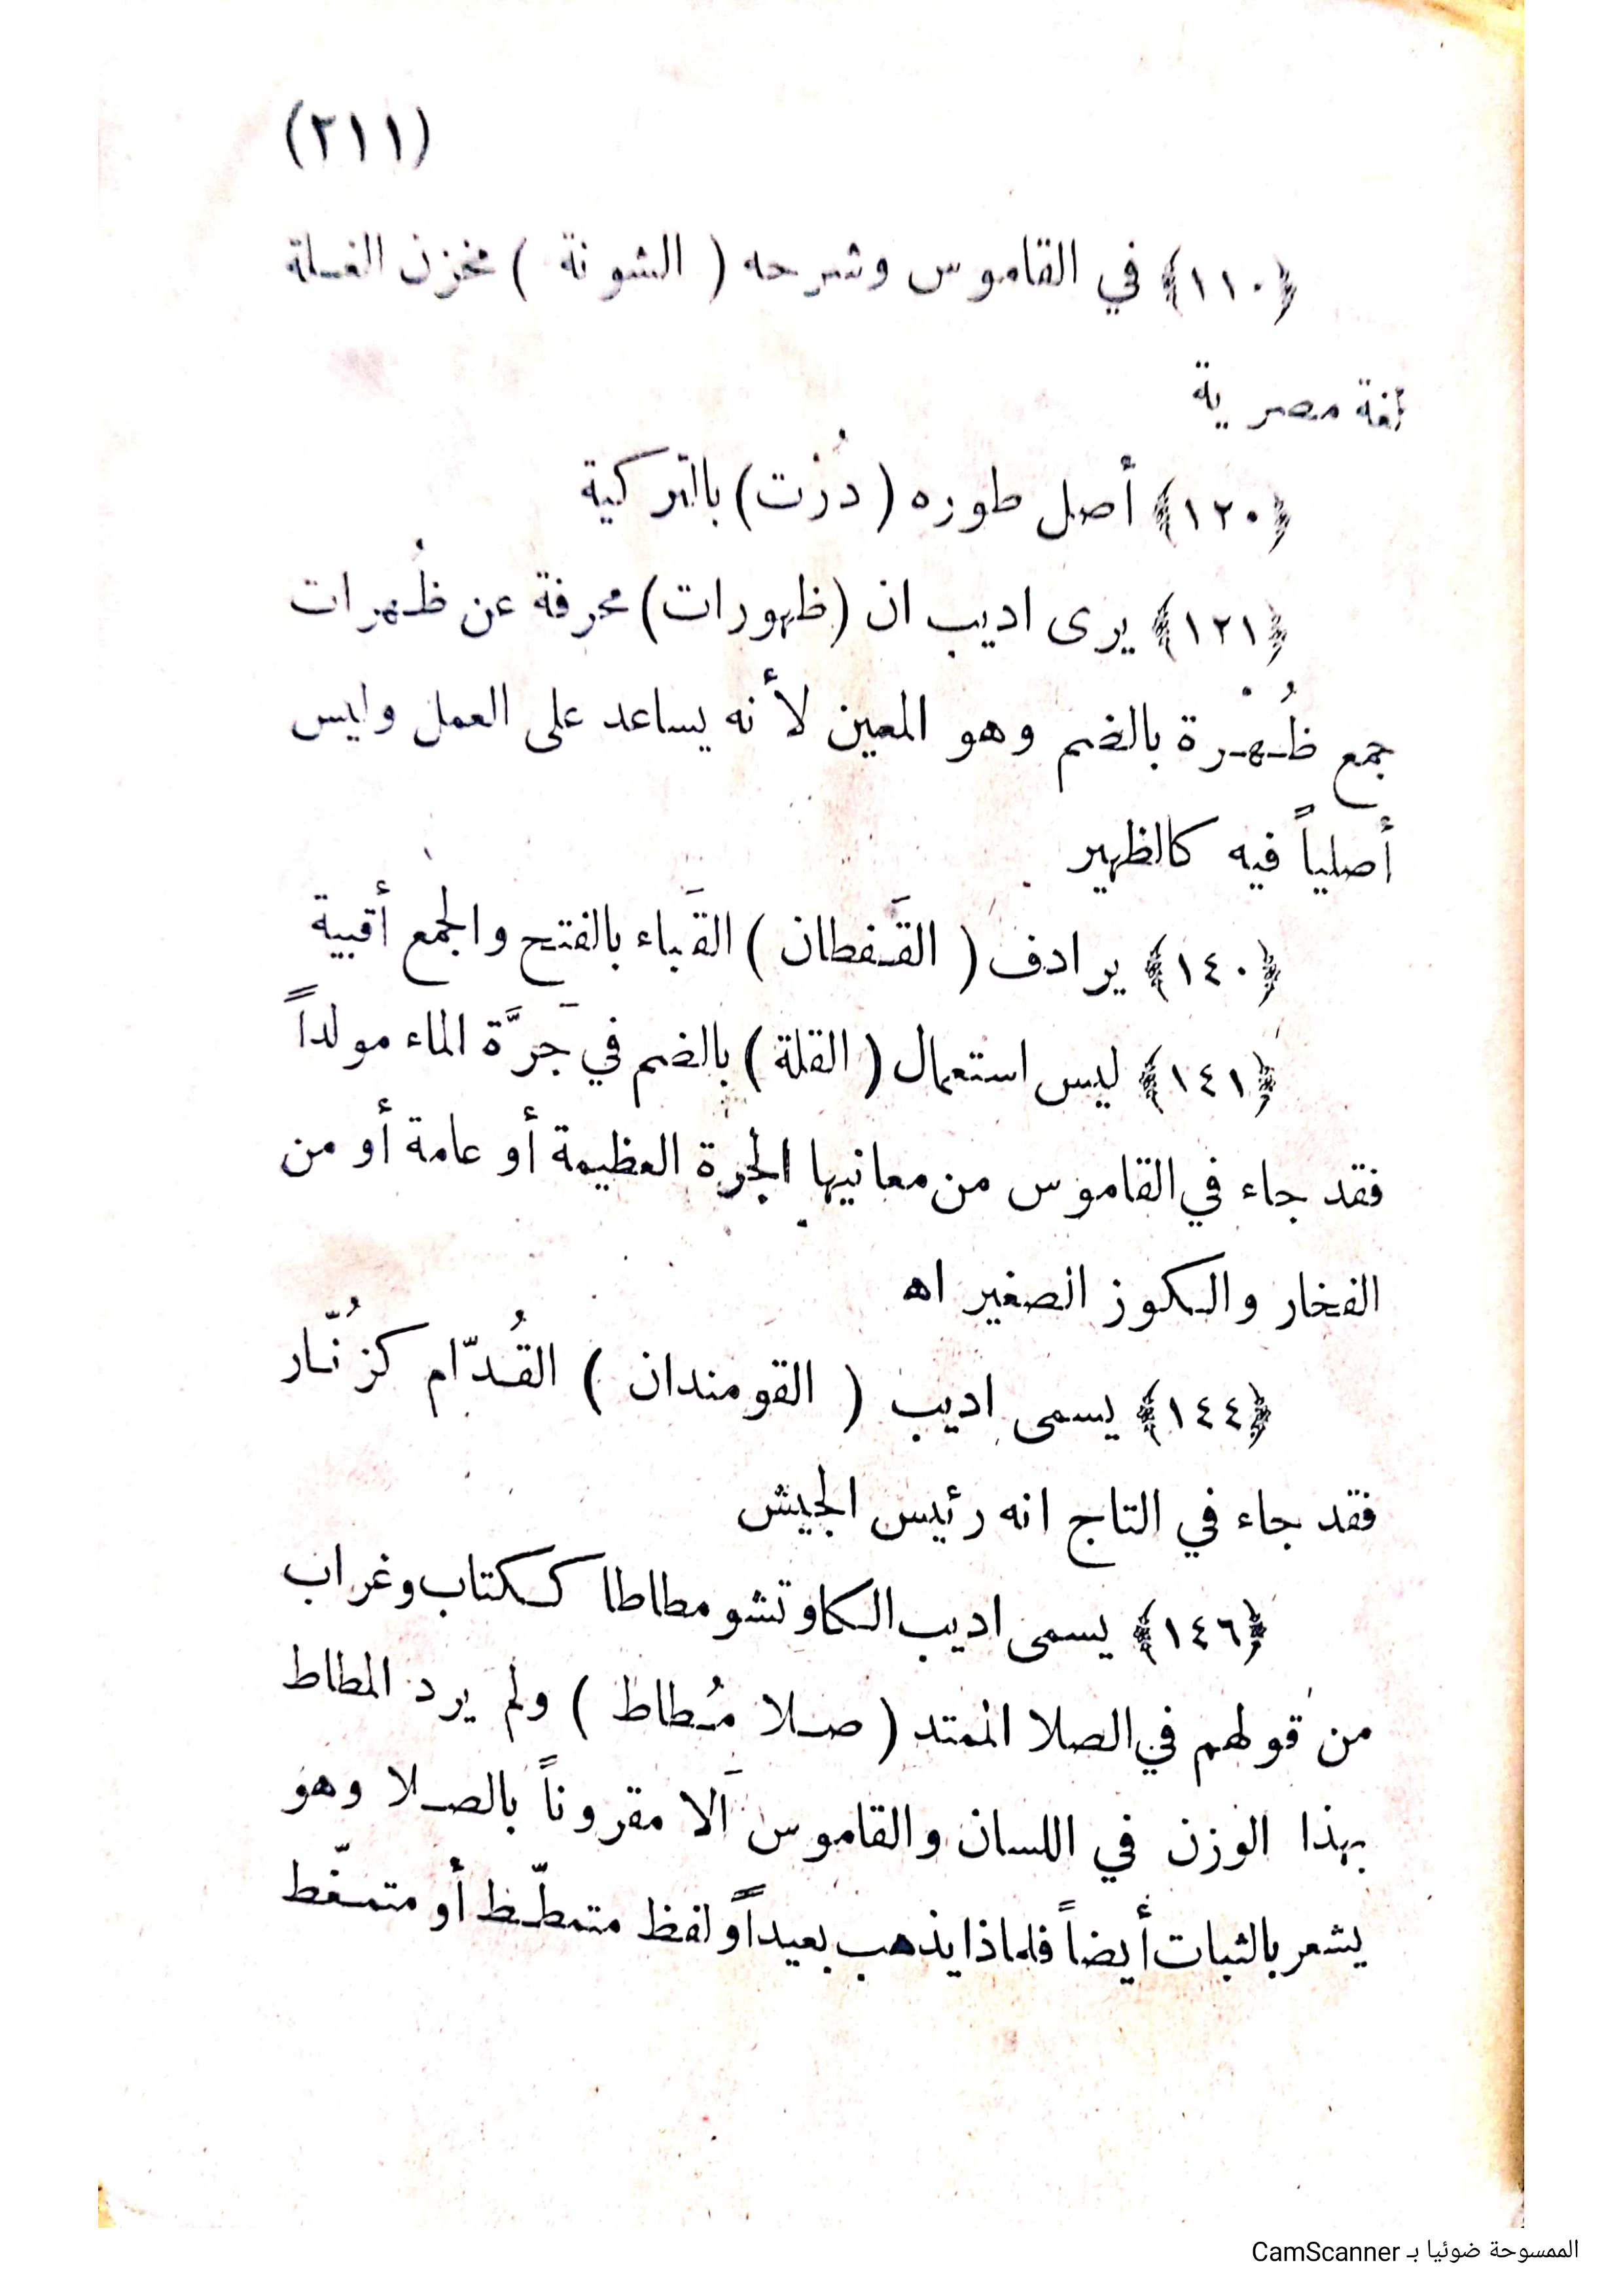 (٢١١)
﴿١١٠﴾ في القاموس وشرحه ( الشونة ) مخزن الغلة
لغة مصرية
﴿١٢٠﴾ أصل طوره ( دُرْت ) بالتركية
﴿١٢١﴾ يرى اديب ان (ظهورات) محرفة عن ظُهرات
جمع ظُهْرة بالضم وهو المعين لأنه يساعد على العمل وليس
أصلياً فيه كالظهير
﴿١٤٠﴾ يرادف ( القَفطان ) القَباء بالفتح والجمع أقبية
﴿١٤١﴾ ليس استعمال ( القلة ) بالضم في جَرَّة الماء مولداً
فقد جاء في القاموس من معانيها الجرة العظيمة أو عامة أو من
الفخار والكوز الصغير اه
﴿١٤٤﴾ يسمى اديب ( القومندان ) القُدّام كزُنّار
فقد جاء في التاج انه رئيس الجيش
﴿١٤٦﴾ يسمى اديب الكاوتشو مطاطا ككتاب وغراب
من قولهم في الصلا الممتد ( صلا مُطاط ) ولم يرد المطاط
بهذا الوزن في اللسان والقاموس الا مقروناً بالصلا وهو
يشعر بالثبات أيضاً فلماذا يذهب بعيداً ولفظ متمطّط أو متمغّط
الممسوحة ضوئيا بـ CamScanner